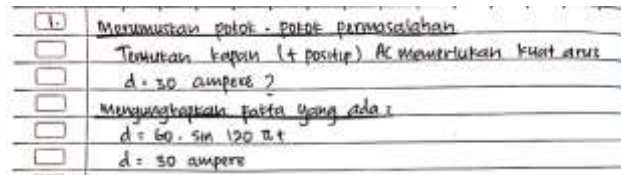 1. Merumuskan pokok - pokok permasalahan
Tentukan kapan (t positip) AC memerlukan kuat arus
d = 30 ampere ?
Mengungkapkan fakta yang ada :
d = 60 . sin 120 πt
d = 30 ampere